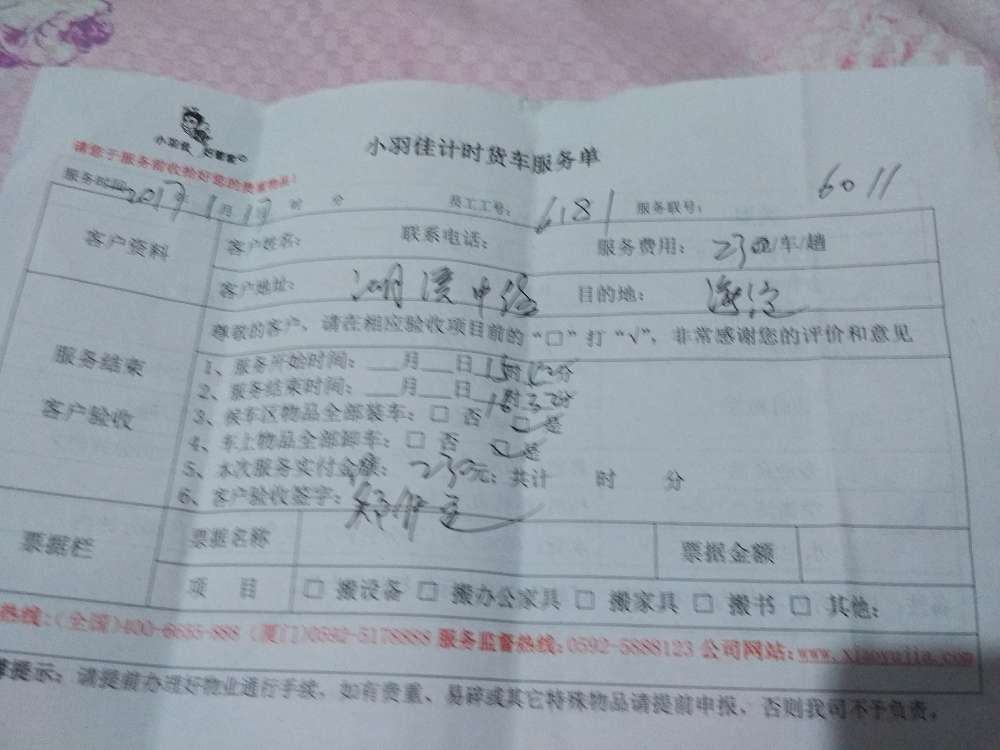 小羽佳 好管家
小羽佳计时货车服务单
请您于服务前收拾好您的贵重物品!
服务时间: 2017年 1月 17 时 分 员工工号: 6181 服务联号: 6011
客户资料 客户姓名: 联系电话: 服务费用: 230元/车/趟
客户地址: 湖滨中路 目的地:
尊敬的客户、请在相应验收项目前的“□”打“√”,非常感谢您的评价和意见
服务结束
客户验收
1、服务开始时间:___月___日 15时 分
2、服务结束时间:___月___日
3、候车区物品全部装车:□ 否 □ 是
4、车上物品全部卸车:□ 否 □ 是
5、本次服务实付金额: 230元;共计 时 分
6、客户验收签字:
票据栏 票据名称 票据金额
项 目 □ 搬设备 □ 搬办公家具 □ 搬家具 □ 搬书 □ 其他:
热线:(全国)400-6655-888 (厦门)0592-5178888 服务监督热线:0592-5888123 公司网站:www.xiaoyujia.com
提示:请提前办理好物业进行手续,如有贵重、易碎或其它特殊物品请提前申报,否则我司不予负责。